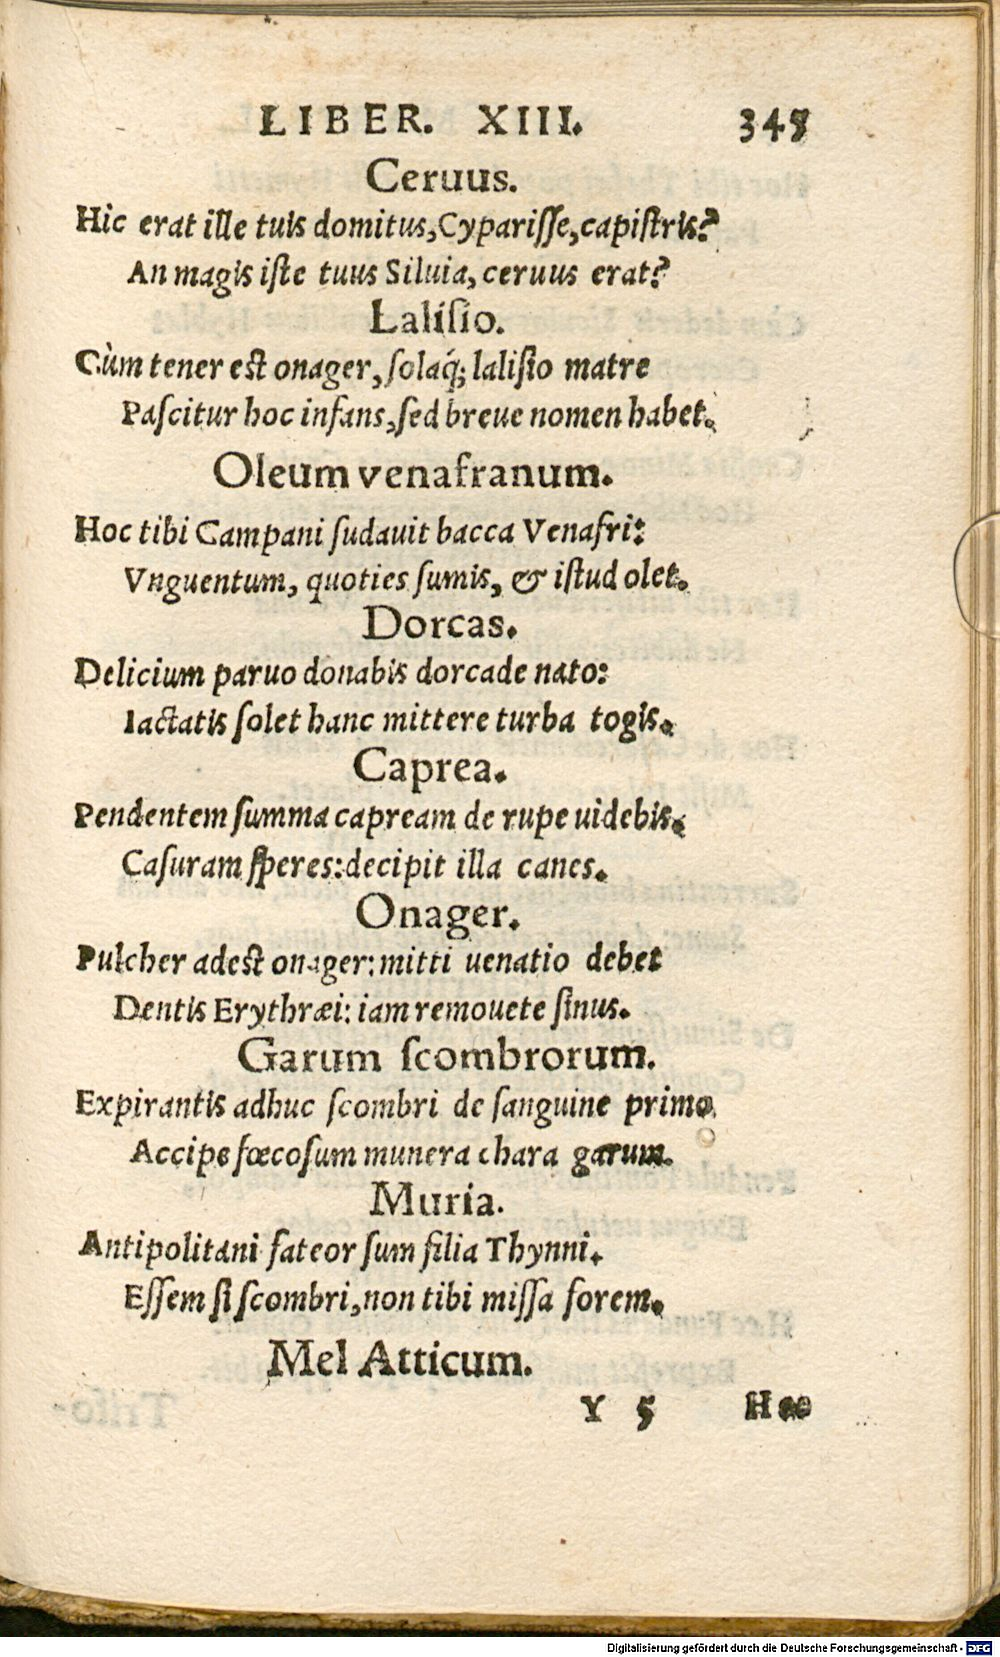 LIBER. XIII. 345
Ceruus.
Hic erat ille tuis domitus, Cyparisse, capistris?
An magis iste tuus Siluia, ceruus erat?
Lalisio.
Cùm tener est onager, solaq́; lalisio matre
Pascitur hoc infans, sed breue nomen habet.
Oleum venafranum.
Hoc tibi Campani sudauit bacca Venafri:
Vnguentum, quoties sumis, & istud olet.
Dorcas.
Delicium paruo donabis dorcade nato:
Iactatis solet hanc mittere turba togis.
Caprea.
Pendentem summa capream de rupe uidebis.
Casuram speres: decipit illa canes.
Onager.
Pulcher adest onager: mitti uenatio debet
Dentis Erythræi: iam remouete sinus.
Garum scombrorum.
Expirantis adhuc scombri de sanguine primo
Accipe fœcosum munera chara garum.
Muria.
Antipolitani fateor sum filia Thynni.
Essem si scombri, non tibi missa forem.
Mel Atticum.
Y 5 Hoc
Digitalisierung gefördert durch die Deutsche Forschungsgemeinschaft - DFG